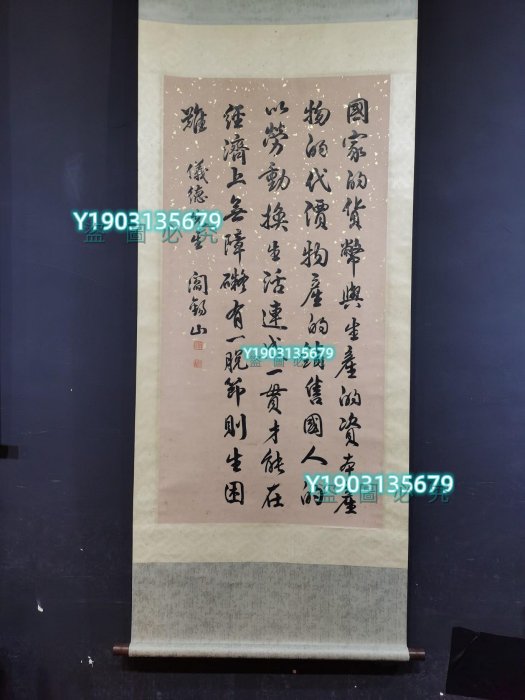 國家的貨幣與生產的資本產
物的代價物產的銷售國人的
以勞動換生活連成一貫才能在
經濟上無障礙有一脫節則生困
難 儀德先生 閻錫山
Y1903135679
盜圖必究
Y1903135679
盜圖必究
Y1903135679
盜圖必究